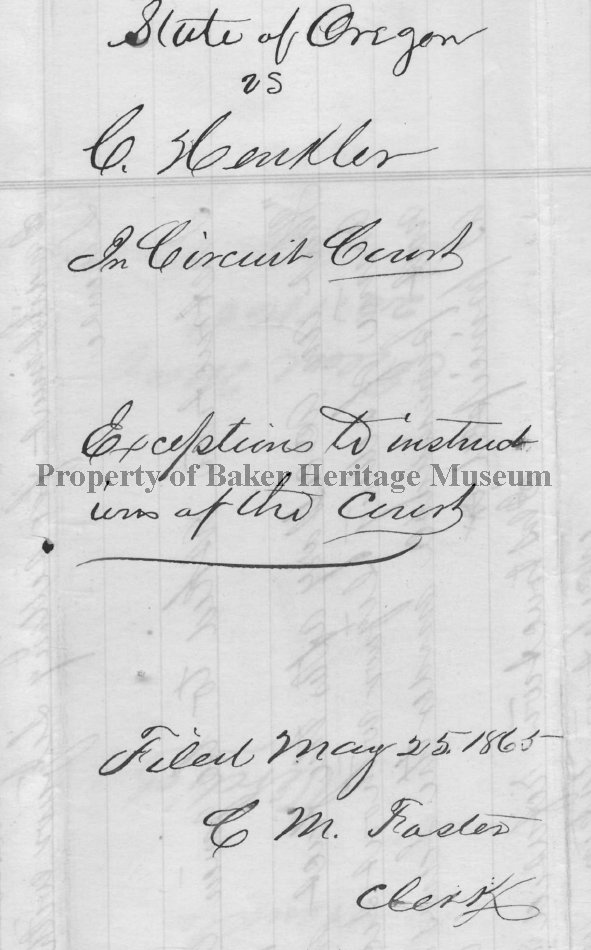 State of Oregon
vs
C. Henkler
In Circuit Court
Exceptions to instruct
Property of Baker Heritage Museum
ions of the Court
Filed May 25. 1865
C M. Foster
Clerk